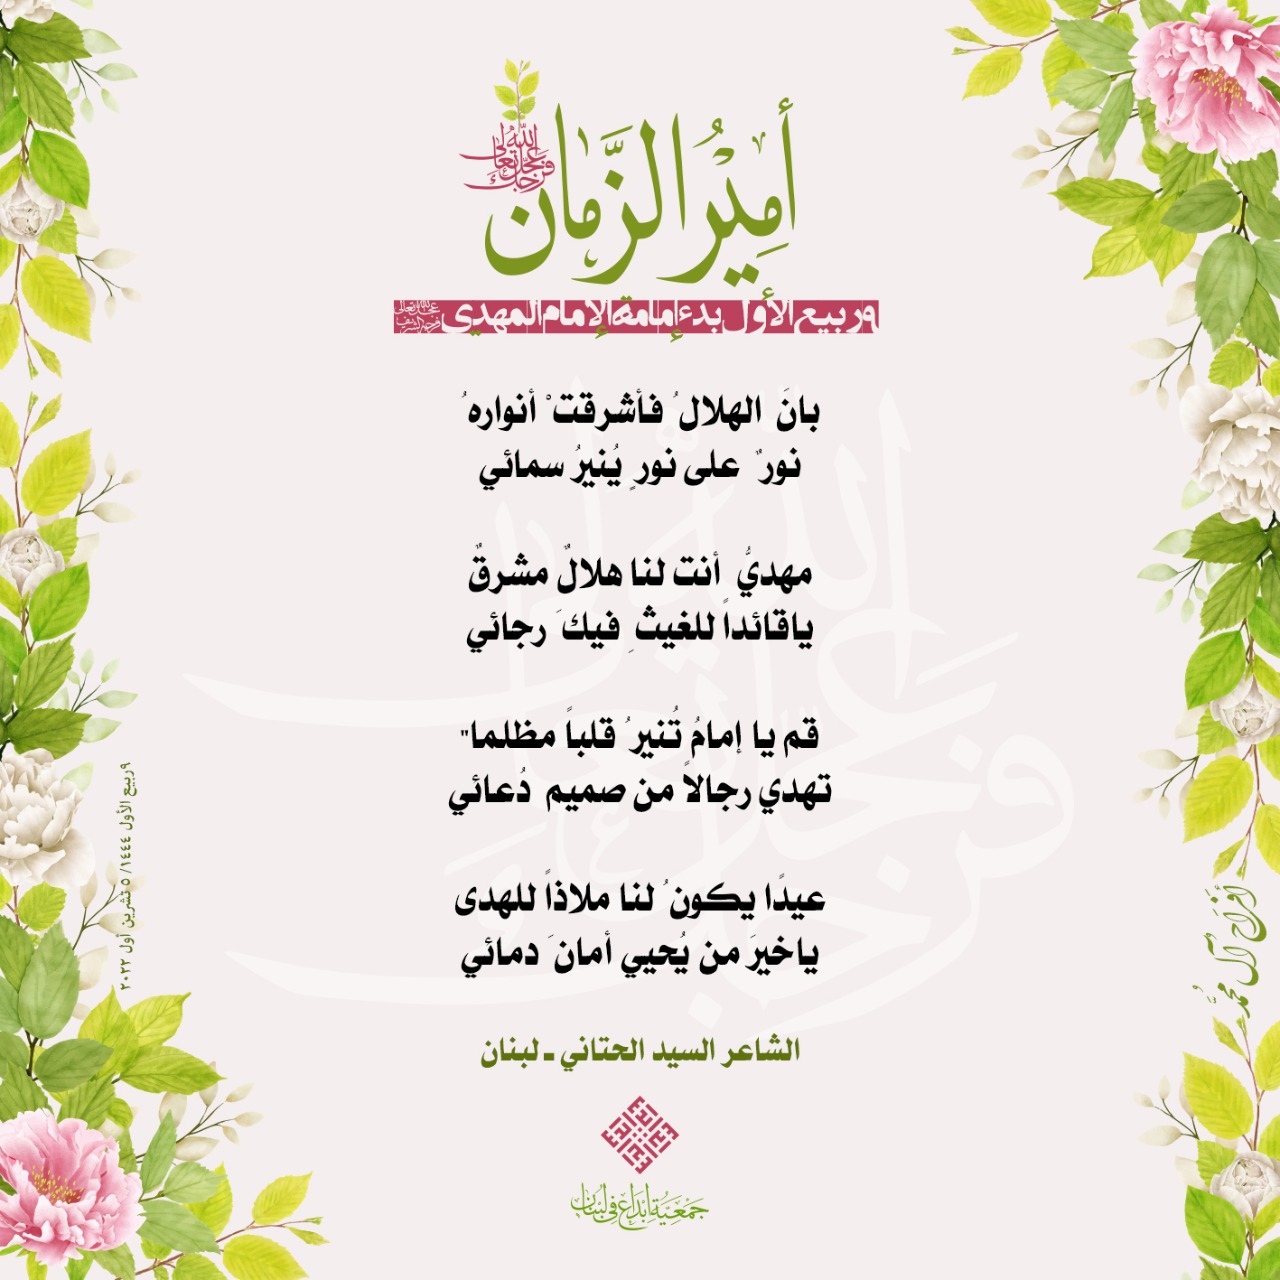 أَمِيْرُ الزَّمَان
عجل الله تعالى فرجك
٩ ربيع الأول بدء إمامة الإمام المهدي عجل الله تعالى فرجه الشريف
بانَ الهلالُ فأشرقتْ أنوارهُ
نورٌ على نورٍ يُنيرُ سمائي
مهديُّ أنت لنا هلالٌ مشرقٌ
ياقائداً للغيثِ فيكَ رجائي
قم يا إمامُ تُنيرُ قلباً مظلما"
تهدي رجالاً من صميم دُعائي
عيدًا يكونُ لنا ملاذاً للهدى
ياخيرَ من يُحيي أمانَ دمائي
الشاعر السيد الحتاني - لبنان
جمعية إبداع في لبنان
٩ ربيع الأول ١٤٤٤ / ٥ تشرين أول ٢٠٢٢
أفراح آل محمد